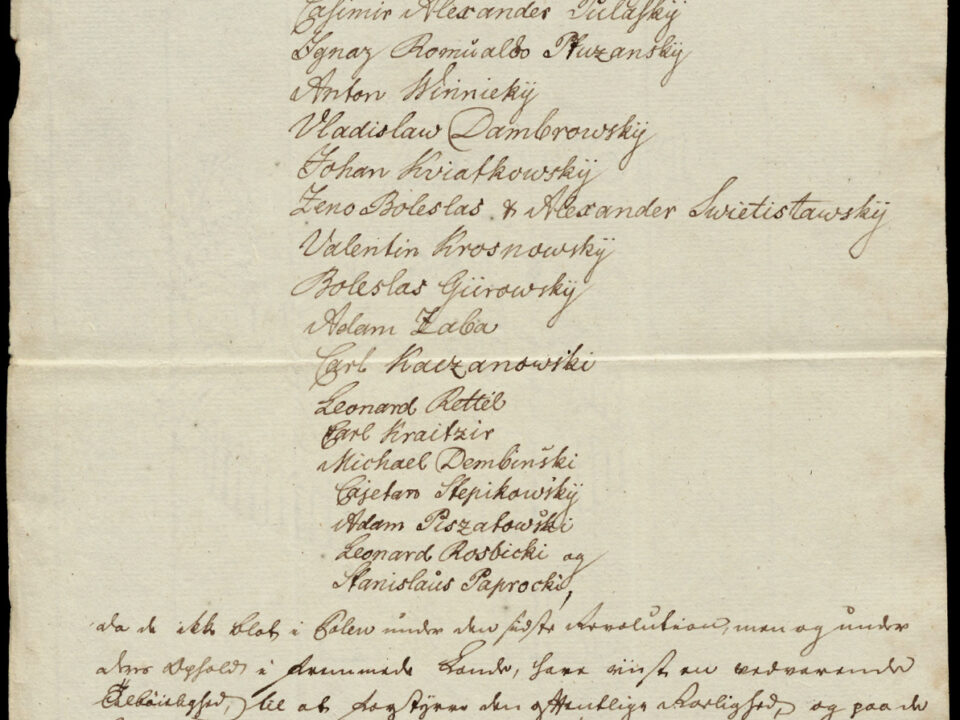 Casimir Alexander Pulafsky
Ignaz Romualdo Pluzansky
Anton Winnicky
Vladislaw Dambrowsky
Johan Kviatkowsky
Zeno Boleslas & Alexander Swietislawsky
Valentin Krosnowsky
Boleslas Gúrowsky
Adam Zaba
Carl Kaczanowski
Leonard Rettél
Carl Kraitzir
Michael Dembinski
Cajetan Stepikowsky
Adam Piszatowski
Leonard Rosbicki og
Stanislaus Paprocki,
da de ikke blot i Polen under den sidste Revolution, men og under
deres Ophold i fremmede Lande, have viist en vedvarende
Tilbøielighed, til at forstyrre den offentlige Rolighed, og paa de